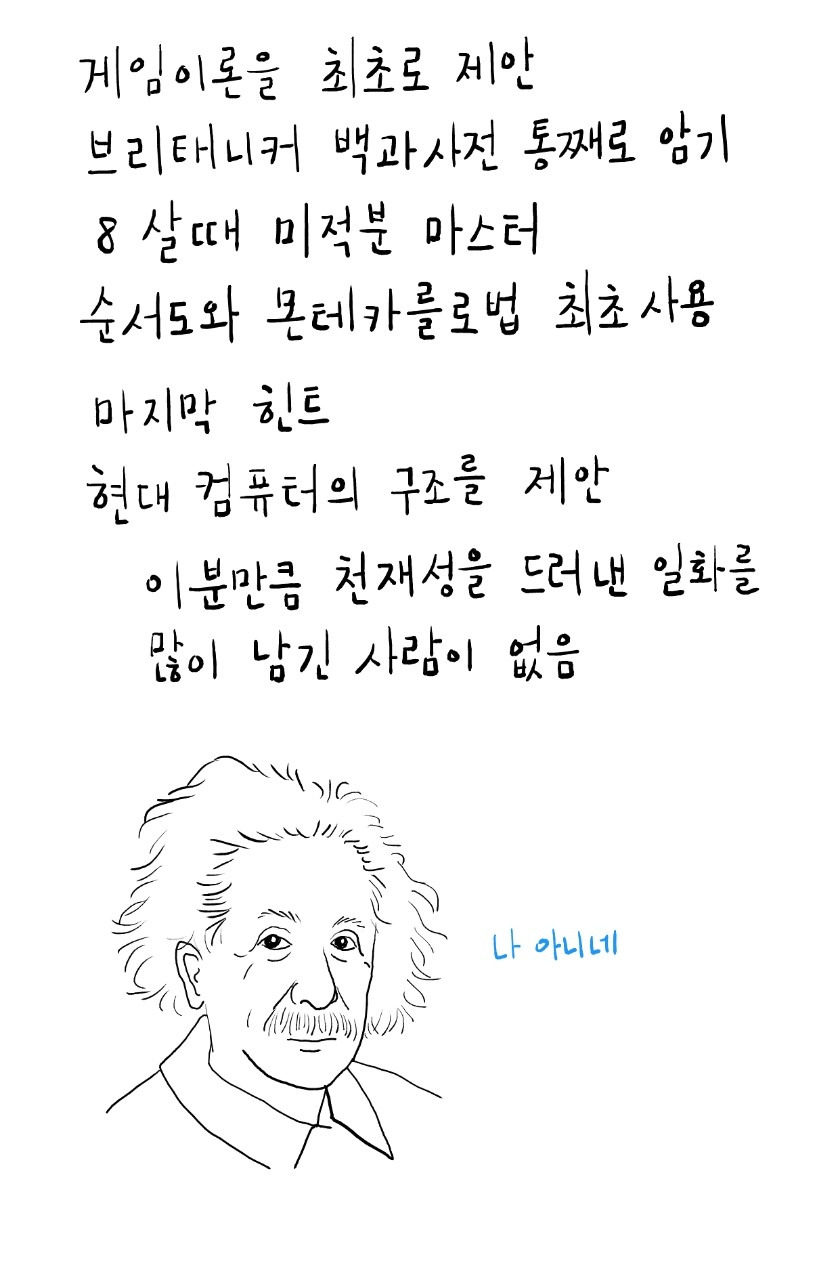 게임이론을 최초로 제안
브리태니커 백과사전 통째로 암기
8살때 미적분 마스터
순서도와 몬테카를로법 최초 사용
마지막 힌트
현대 컴퓨터의 구조를 제안
이분만큼 천재성을 드러낸 일화를
많이 남긴 사람이 없음
나 아니네